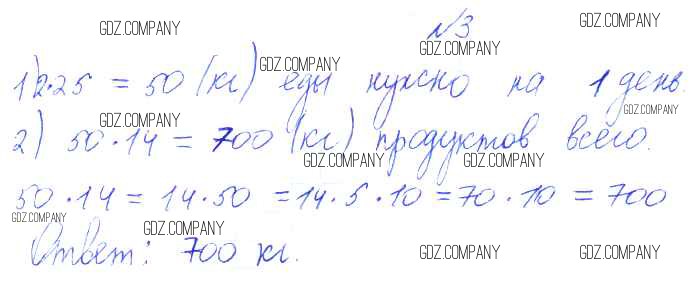 №3
1) 2·25 = 50 (кг) еды нужно на 1 день.
2) 50·14 = 700 (кг) продуктов всего.
50·14 = 14·50 = 14·5·10 = 70·10 = 700
Ответ: 700 кг.
GDZ.COMPANY
GDZ.COMPANY
GDZ.COMPANY
GDZ.COMPANY
GDZ.COMPANY
GDZ.COMPANY
GDZ.COMPANY
GDZ.COMPANY
GDZ.COMPANY
GDZ.COMPANY
GDZ.COMPANY
GDZ.COMPANY